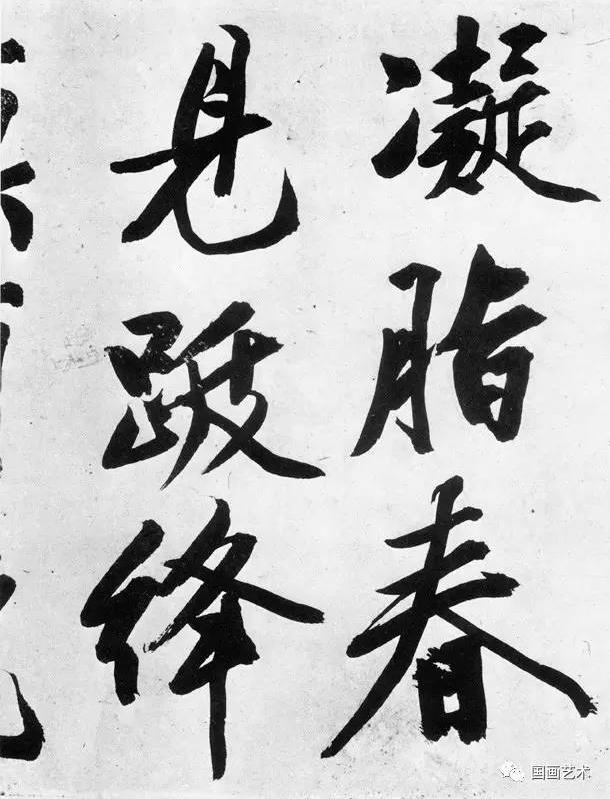 凝脂春
見跋絳
国画艺术